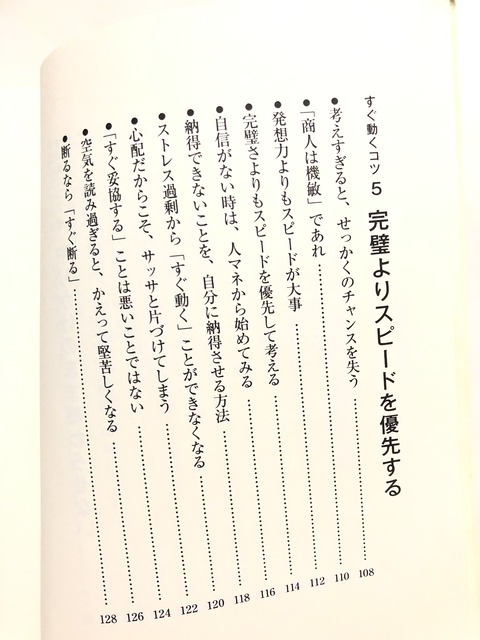 すぐ動くコツ 5 完璧よりスピードを優先する
●考えすぎると、せっかくのチャンスを失う 108
●「商人は機敏」であれ 110
●発想力よりもスピードが大事 112
●完璧さよりもスピードを優先して考える 114
●自信がない時は、人マネから始めてみる 116
●納得できないことを、自分に納得させる方法 118
●ストレス過剰から「すぐ動く」ことができなくなる 120
●心配だからこそ、サッサと片づけてしまう 122
●「すぐ妥協する」ことは悪いことではない 124
●空気を読み過ぎると、かえって堅苦しくなる 126
●断るなら「すぐ断る」 128